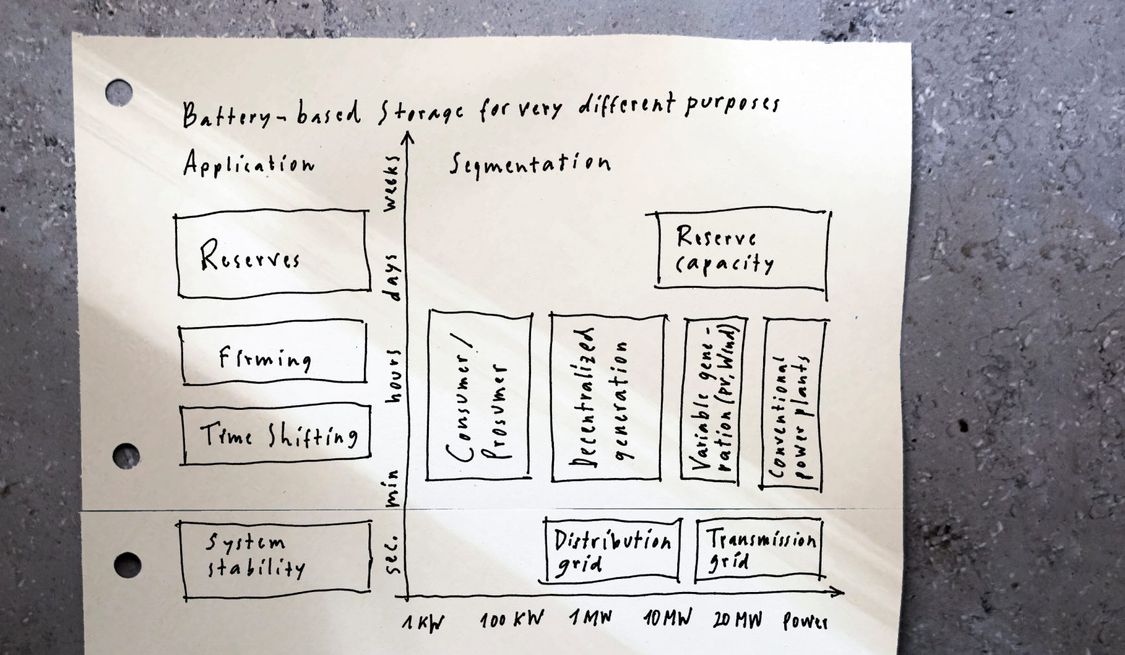 Battery-based Storage for very different purposes
Application
Segmentation
Reserves
Firming
Time Shifting
System
stability
weeks
days
hours
min
sec.
Reserve
capacity
Consumer/
Prosumer
Decentralized
generation
Variable gene-
ration (PV, Wind)
Conventional
power plants
Distribution
grid
Transmission
grid
1 KW 100 KW 1 MW 10 MW 20 MW Power